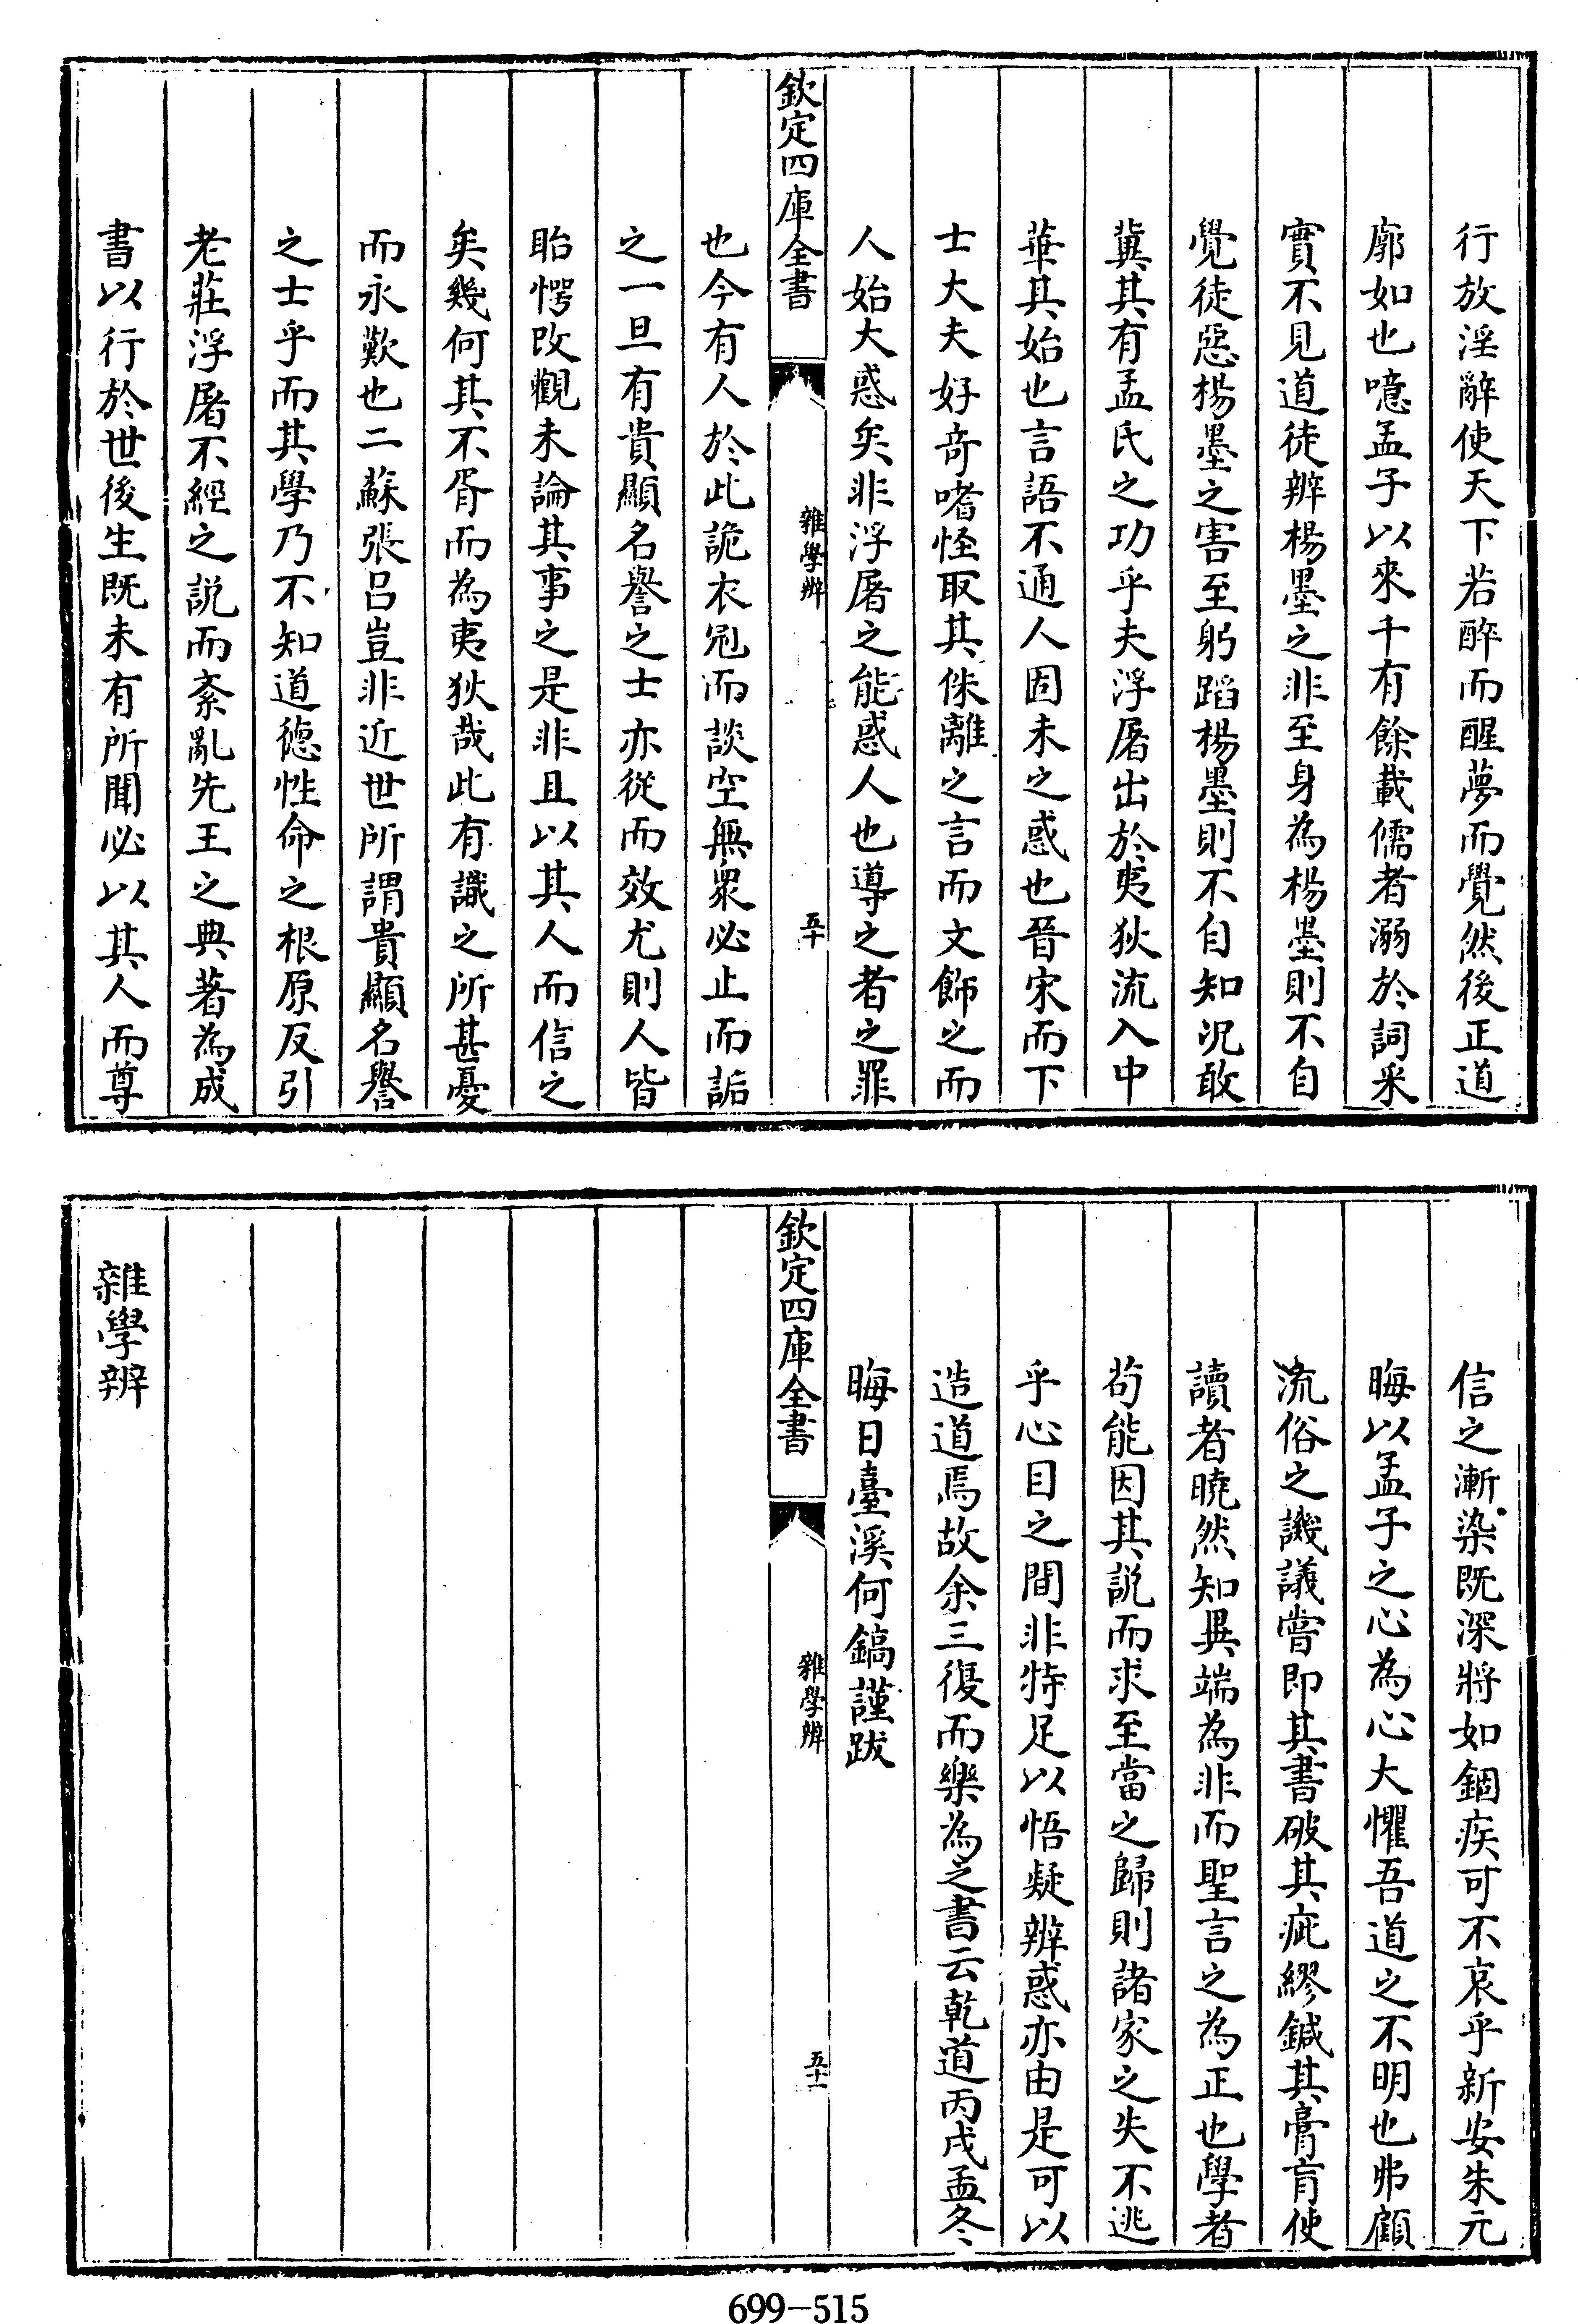 行放淫辭使天下若醉而醒夢而覺然後正道
廓如也噫孟子以來千有餘載儒者溺於詞采
實不見道徒辨楊墨之非至身為楊墨則不自
覺徒惡楊墨之害至躬蹈楊墨則不自知況敢
冀其有孟氏之功乎夫浮屠出於夷狄流入中
華其始也言語不通人固未之惑也晉宋而下
士大夫好奇嗜怪取其侏離之言而文飾之而
人始大惑矣非浮屠之能惑人也導之者之罪
欽定四庫全書
雜學辨
五十
也今有人於此詭衣冠而談空無衆必止而詬
之一旦有貴顯名譽之士亦從而效尤則人皆
眙愕改觀未論其事之是非且以其人而信之
矣幾何其不胥而為夷狄哉此有識之所甚憂
而永歎也二蘇張吕豈非近世所謂貴顯名譽
之士乎而其學乃不知道德性命之根原反引
老莊浮屠不經之說而紊亂先王之典著為成
書以行於世後生既未有所聞必以其人而尊
信之漸染既深將如錮疾可不哀乎新安朱元
晦以孟子之心為心大懼吾道之不明也弗顧
流俗之譏議嘗即其書破其疵繆鍼其膏肓使
讀者曉然知異端為非而聖言之為正也學者
茍能因其說而求至當之歸則諸家之失不逃
乎心目之間非特足以悟疑辨惑亦由是可以
造道焉故余三復而樂為之書云乾道丙戌孟冬
晦日臺溪何鎬謹跋
欽定四庫全書
雜學辨
五十一
雜學辨
699-515